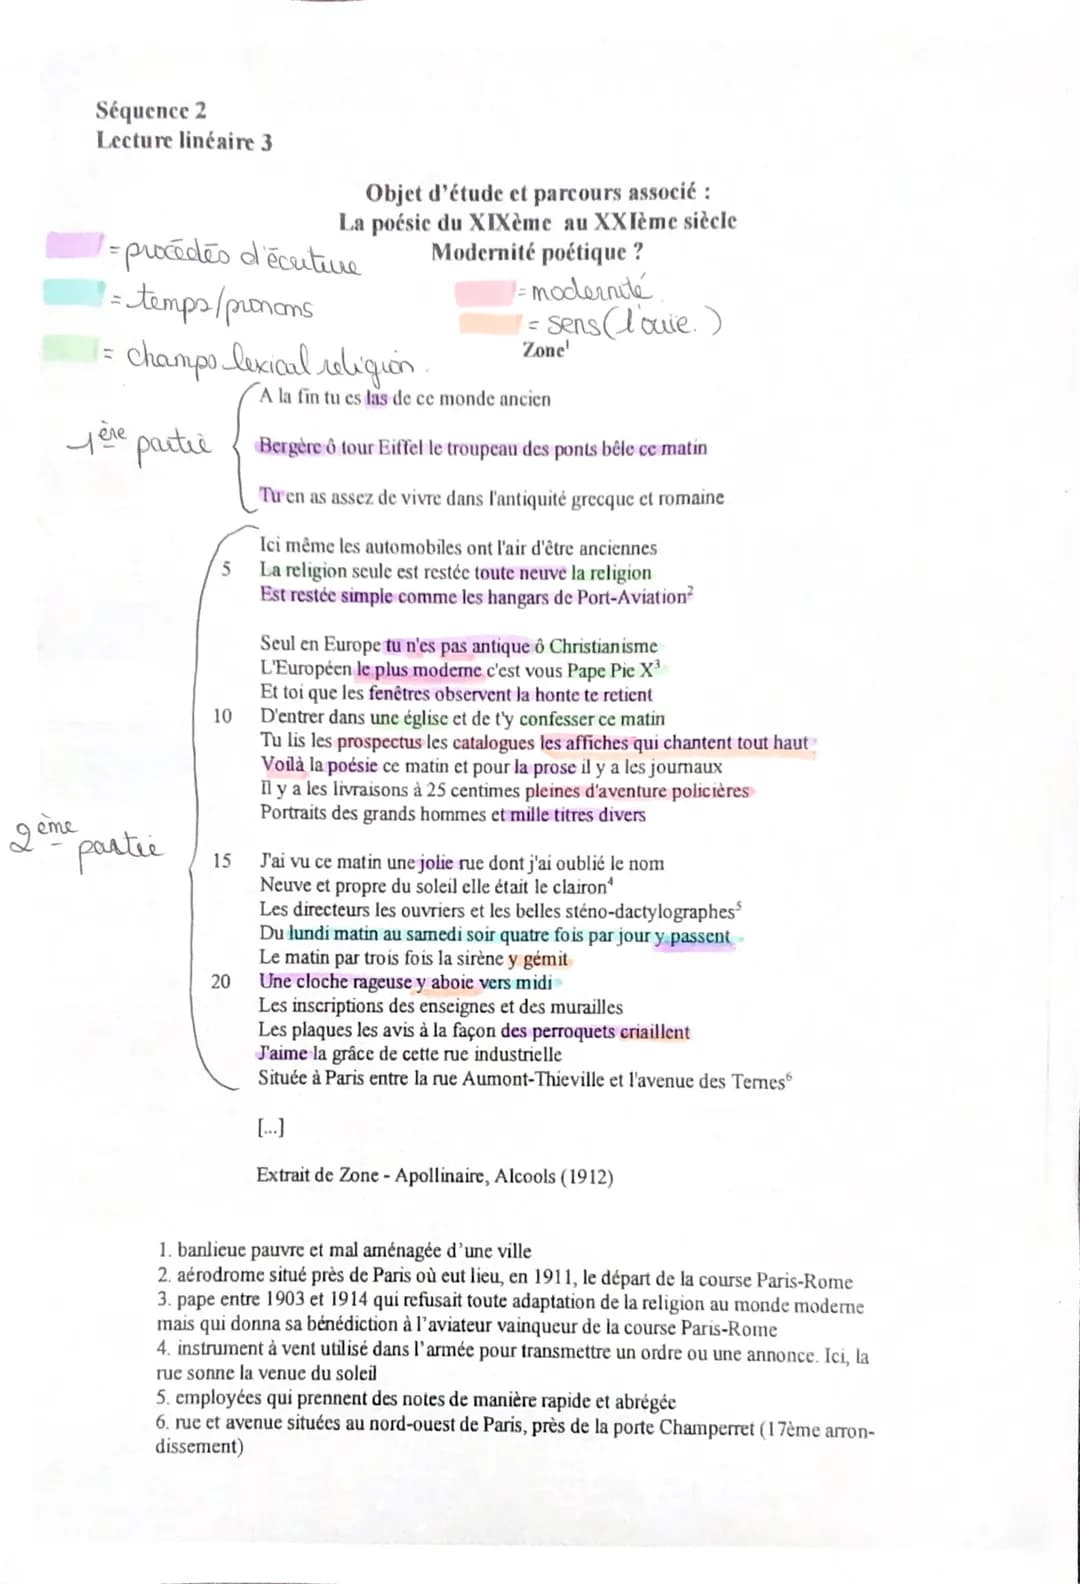 Séquence 2
Lecture linéaire 3
Objet d'étude et parcours associé :
La poésie du XIXème au XXIème siècle
Modernité poétique ?
= procédés d'écriture
= temps/pronoms
= champs lexical religion.
= modernité.
= sens (l'ouïe.)
Zone¹
1ère partie
A la fin tu es las de ce monde ancien
Bergère ô tour Eiffel le troupeau des ponts bêle ce matin
Tu en as assez de vivre dans l'antiquité grecque et romaine
2ème partie
Ici même les automobiles ont l'air d'être anciennes
5 La religion seule est restée toute neuve la religion
Est restée simple comme les hangars de Port-Aviation²
Seul en Europe tu n'es pas antique ô Christianisme
L'Européen le plus moderne c'est vous Pape Pie X³
Et toi que les fenêtres observent la honte te retient
10 D'entrer dans une église et de t'y confesser ce matin
Tu lis les prospectus les catalogues les affiches qui chantent tout haut
Voilà la poésie ce matin et pour la prose il y a les journaux
Il y a les livraisons à 25 centimes pleines d'aventure policières
Portraits des grands hommes et mille titres divers
15 J'ai vu ce matin une jolie rue dont j'ai oublié le nom
Neuve et propre du soleil elle était le clairon⁴
Les directeurs les ouvriers et les belles sténo-dactylographes⁵
Du lundi matin au samedi soir quatre fois par jour y passent
Le matin par trois fois la sirène y gémit
20 Une cloche rageuse y aboie vers midi
Les inscriptions des enseignes et des murailles
Les plaques les avis à la façon des perroquets criaillent
J'aime la grâce de cette rue industrielle
Située à Paris entre la rue Aumont-Thieville et l'avenue des Ternes⁶
[...]
Extrait de Zone - Apollinaire, Alcools (1912)
1. banlieue pauvre et mal aménagée d'une ville
2. aérodrome situé près de Paris où eut lieu, en 1911, le départ de la course Paris-Rome
3. pape entre 1903 et 1914 qui refusait toute adaptation de la religion au monde moderne
mais qui donna sa bénédiction à l'aviateur vainqueur de la course Paris-Rome
4. instrument à vent utilisé dans l'armée pour transmettre un ordre ou une annonce. Ici, la
rue sonne la venue du soleil
5. employées qui prennent des notes de manière rapide et abrégée
6. rue et avenue situées au nord-ouest de Paris, près de la porte Champerret (17ème arron-
dissement)